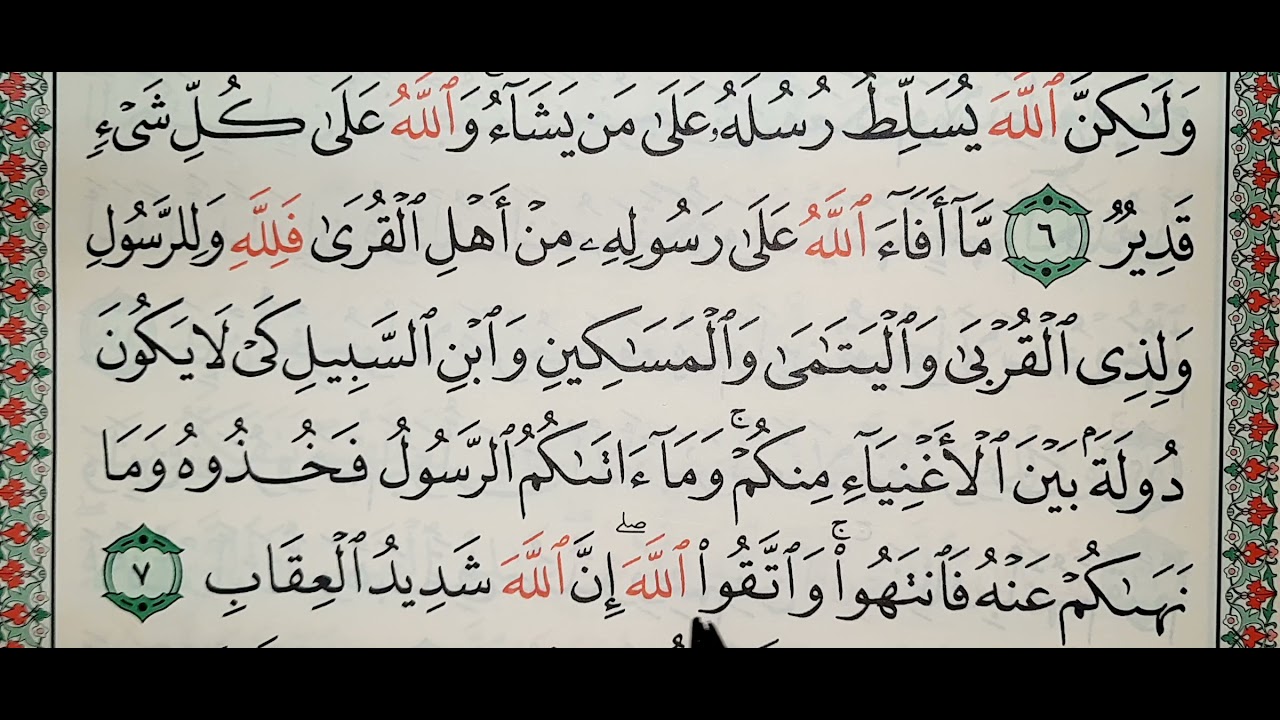 وَلَٰكِنَّ ٱللَّهَ يُسَلِّطُ رُسُلَهُۥ عَلَىٰ مَن يَشَآءُ وَٱللَّهُ عَلَىٰ كُلِّ شَىْءٍ
قَدِيرٌ ٦ مَّآ أَفَآءَ ٱللَّهُ عَلَىٰ رَسُولِهِۦ مِنْ أَهْلِ ٱلْقُرَىٰ فَلِلَّهِ وَلِلرَّسُولِ
وَلِذِى ٱلْقُرْبَىٰ وَٱلْيَتَـٰمَىٰ وَٱلْمَسَـٰكِينِ وَٱبْنِ ٱلسَّبِيلِ كَىْ لَا يَكُونَ
دُولَةَۢ بَيْنَ ٱلْأَغْنِيَآءِ مِنكُمْ ۚ وَمَآ ءَاتَىٰكُمُ ٱلرَّسُولُ فَخُذُوهُ وَمَا
نَهَىٰكُمْ عَنْهُ فَٱنتَهُوا۟ ۚ وَٱتَّقُوا۟ ٱللَّهَ ۖ إِنَّ ٱللَّهَ شَدِيدُ ٱلْعِقَابِ ٧